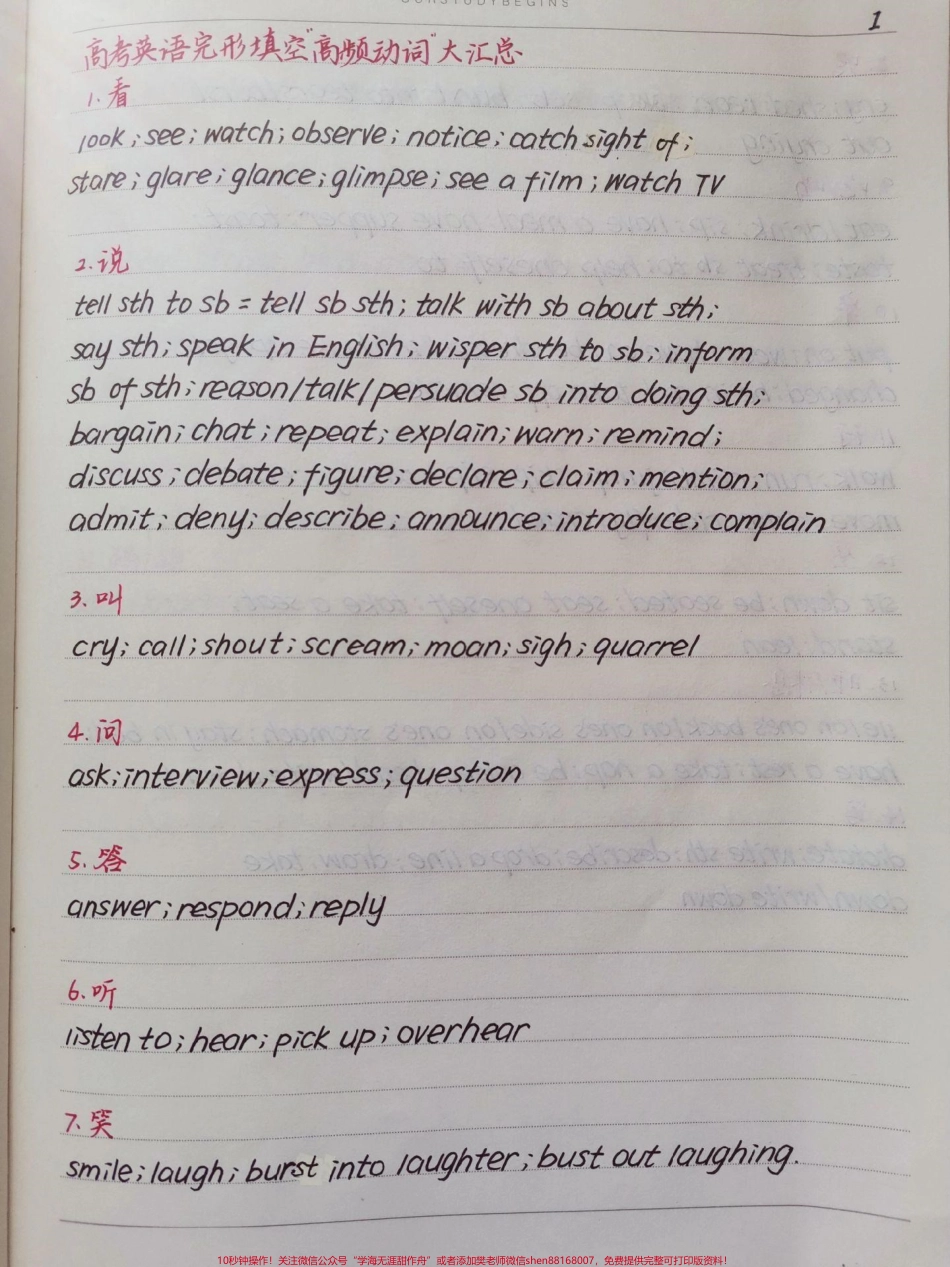 OURSTUDYBEGINS
1
高考英语完形填空"高频动词"大汇总
1.看
look; see; watch; observe; notice; catch sight of;
stare; glare; glance; glimpse; see a film; watch TV
2.说
tell sth to sb = tell sb sth; talk with sb about sth;
say sth; speak in English; wisper sth to sb; inform
sb of sth; reason/talk/persuade sb into doing sth;
bargain; chat; repeat; explain; warn; remind;
discuss; debate; figure; declare; claim; mention;
admit; deny; describe; announce; introduce; complain
3.叫
cry; call; shout; scream; moan; sigh; quarrel
4.问
ask; interview; express; question
5.答
answer; respond; reply
6.听
listen to; hear; pick up; overhear
7.笑
smile; laugh; burst into laughter; bust out laughing.
10秒钟操作！关注微信公众号“学海无涯甜作舟”或者添加樊老师微信shen88168007，免费提供完整可打印版资料！